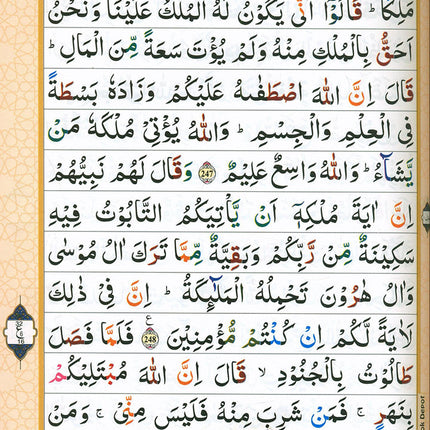 مَلِكًا ؕ قَالُوْۤا اَنّٰى يَكُوْنُ لَهُ الْمُلْكُ عَلَيْنَا وَنَحْنُ
اَحَقُّ بِالْمُلْكِ مِنْهُ وَلَمْ يُؤْتَ سَعَةً مِّنَ الْمَالِ ؕ
قَالَ اِنَّ اللّٰهَ اصْطَفٰىهُ عَلَيْكُمْ وَزَادَهٗ بَسْطَةً
فِى الْعِلْمِ وَالْجِسْمِ ؕ وَاللّٰهُ يُؤْتِىْ مُلْكَهٗ مَنْ
يَّشَآءُ ؕ وَاللّٰهُ وَاسِعٌ عَلِيْمٌ 247 وَقَالَ لَهُمْ نَبِيُّهُمْ
اِنَّ اٰيَةَ مُلْكِهٖۤ اَنْ يَّاْتِيَكُمُ التَّابُوْتُ فِيْهِ
سَكِيْنَةٌ مِّنْ رَّبِّكُمْ وَبَقِيَّةٌ مِّمَّا تَرَكَ اٰلُ مُوْسٰى
وَاٰلُ هٰرُوْنَ تَحْمِلُهُ الْمَلٰٓئِكَةُ ؕ اِنَّ فِىْ ذٰلِكَ
لَاٰيَةً لَّكُمْ اِنْ كُنْتُمْ مُّؤْمِنِيْنَ ع 248 فَلَمَّا فَصَلَ
طَالُوْتُ بِالْجُنُوْدِ ۙ قَالَ اِنَّ اللّٰهَ مُبْتَلِيْكُمْ
بِنَهَرٍ ۚ فَمَنْ شَرِبَ مِنْهُ فَلَيْسَ مِنِّىْ ۚ وَمَنْ